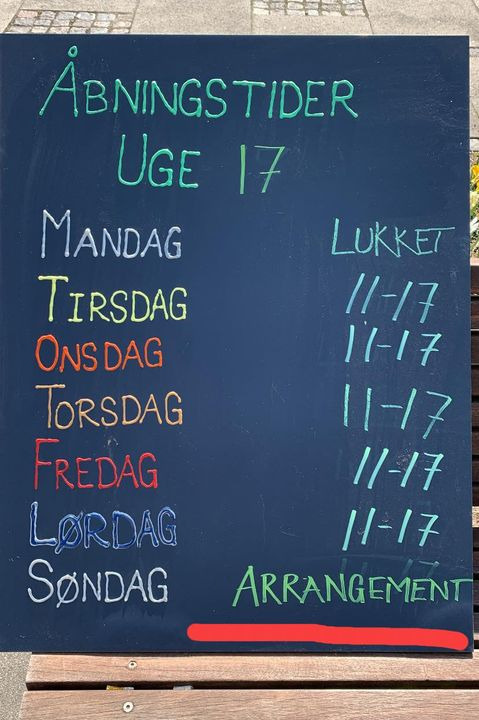 ÅBNINGSTIDER
UGE 17
MANDAG LUKKET
TIRSDAG 11-17
ONSDAG 11-17
TORSDAG 11-17
FREDAG 11-17
LØRDAG 11-17
SØNDAG ARRANGEMENT